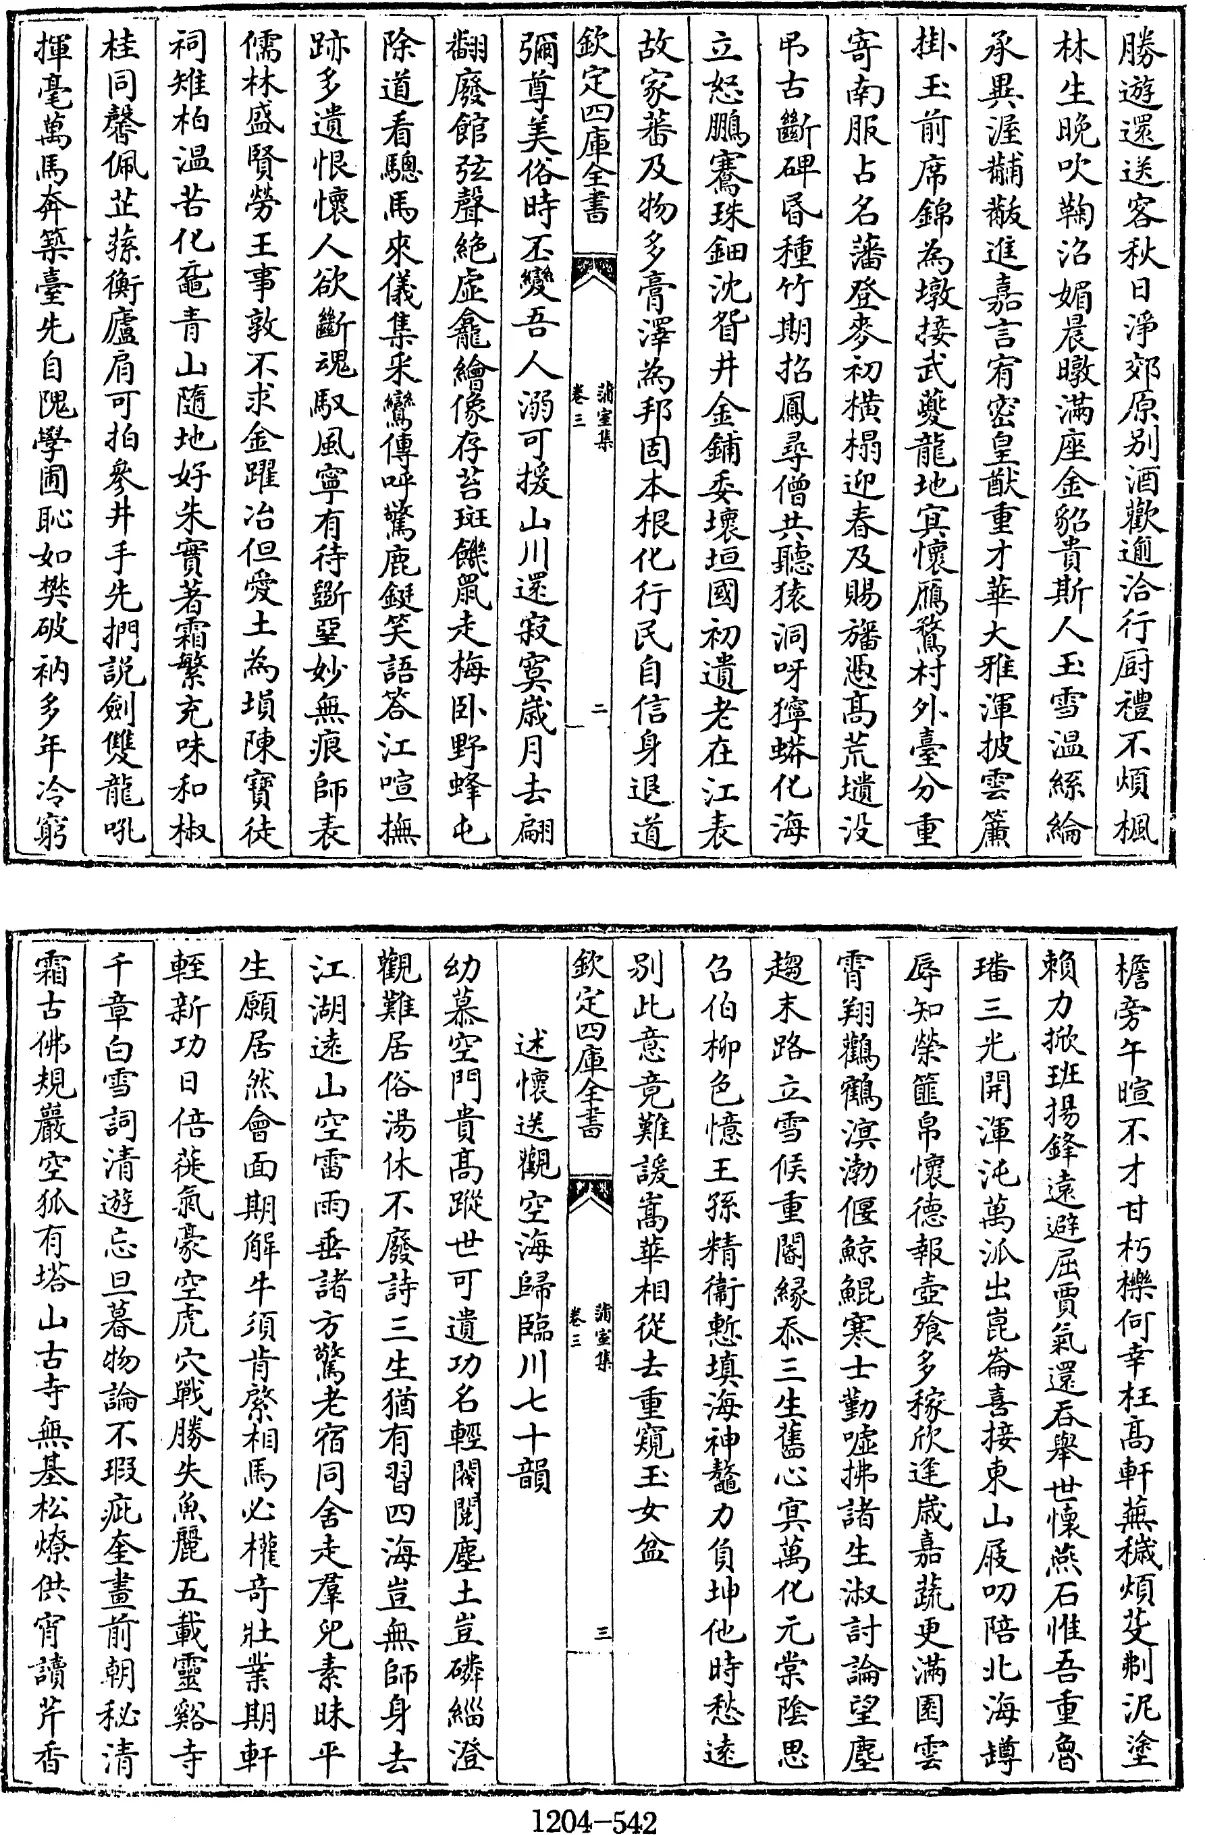 勝遊還送客秋日淨郊原别酒歡逾洽行厨禮不煩楓
林生晚吹鞠沼媚晨暾滿座金貂貴斯人玉雪温絲綸
承異渥黼黻進嘉言宥密皇猷重才華大雅渾披雲簾
掛玉前席錦為墩接武夔龍地㝠懷鴈鶩村外臺分重
寄南服占名藩登麥初横榻迎春及賜旛憑髙荒壝没
弔古斷碑昏種竹期招鳳尋僧共聽猿洞呀獰蟒化海
立怒鵬騫珠鈿沈眢井金鋪委壞垣國初遺老在江表
故家蕃及物多膏澤為邦固本根化行民自信身退道
欽定四庫全書
蒲室集
卷三
二
彌尊美俗時丕變吾人溺可援山川還寂寞嵗月去翩
翻廢館弦聲絶虚龕繪像存苔斑饑鼠走梅卧野蜂屯
除道看驄馬來儀集采鸞傳呼驚鹿鋌笑語答江喧撫
跡多遺恨懷人欲斷魂馭風寧有待斵堊妙無痕師表
儒林盛賢勞王事敦不求金躍冶但愛土為塤陳寶徒
祠雉柏温若化黿青山隨地好朱實著霜繁充味和椒
桂同馨佩芷蓀衡廬肩可拍參井手先捫説劍雙龍吼
揮毫萬馬奔築臺先自隗學圃恥如樊破衲多年冷窮
檐旁午暄不才甘朽櫟何幸枉髙軒蕪穢煩芟剃泥塗
賴力掀班揚鋒逺避屈賈氣還吞舉世懷燕石惟吾重魯
璠三光開渾沌萬派出崑崙喜接東山屐叨陪北海罇
辱知榮篚帛懷德報壺飱多稼欣逢嵗嘉蔬更滿園雲
霄翔鸛鶴溟渤偃鯨鯤寒士勤嘘拂諸生淑討論望塵
趨末路立雪候重閽緣忝三生舊心㝠萬化元棠陰思
召伯柳色憶王孫精衞慙填海神鼇力負坤他時愁逺
别此意竟難諼嵩華相從去重窺玉女盆
欽定四庫全書
蒲室集
卷三
三
述懷送觀空海歸臨川七十韻
幼慕空門貴髙蹤世可遺功名輕閥閱塵土豈磷緇澄
觀難居俗湯休不廢詩三生猶有習四海豈無師身去
江湖逺山空雷雨垂諸方驚老宿同舍走羣兒素昧平
生願居然會面期解牛須肯綮相馬必權竒壯業期軒
輊新功日倍蓰氣豪空虎穴戰勝失魚麗五載靈谿寺
千章白雪詞清遊忘旦暮物論不瑕疵奎畫前朝秘清
霜古佛規巖空狐有塔山古寺無基松燎供宵讀芹香
1204-542